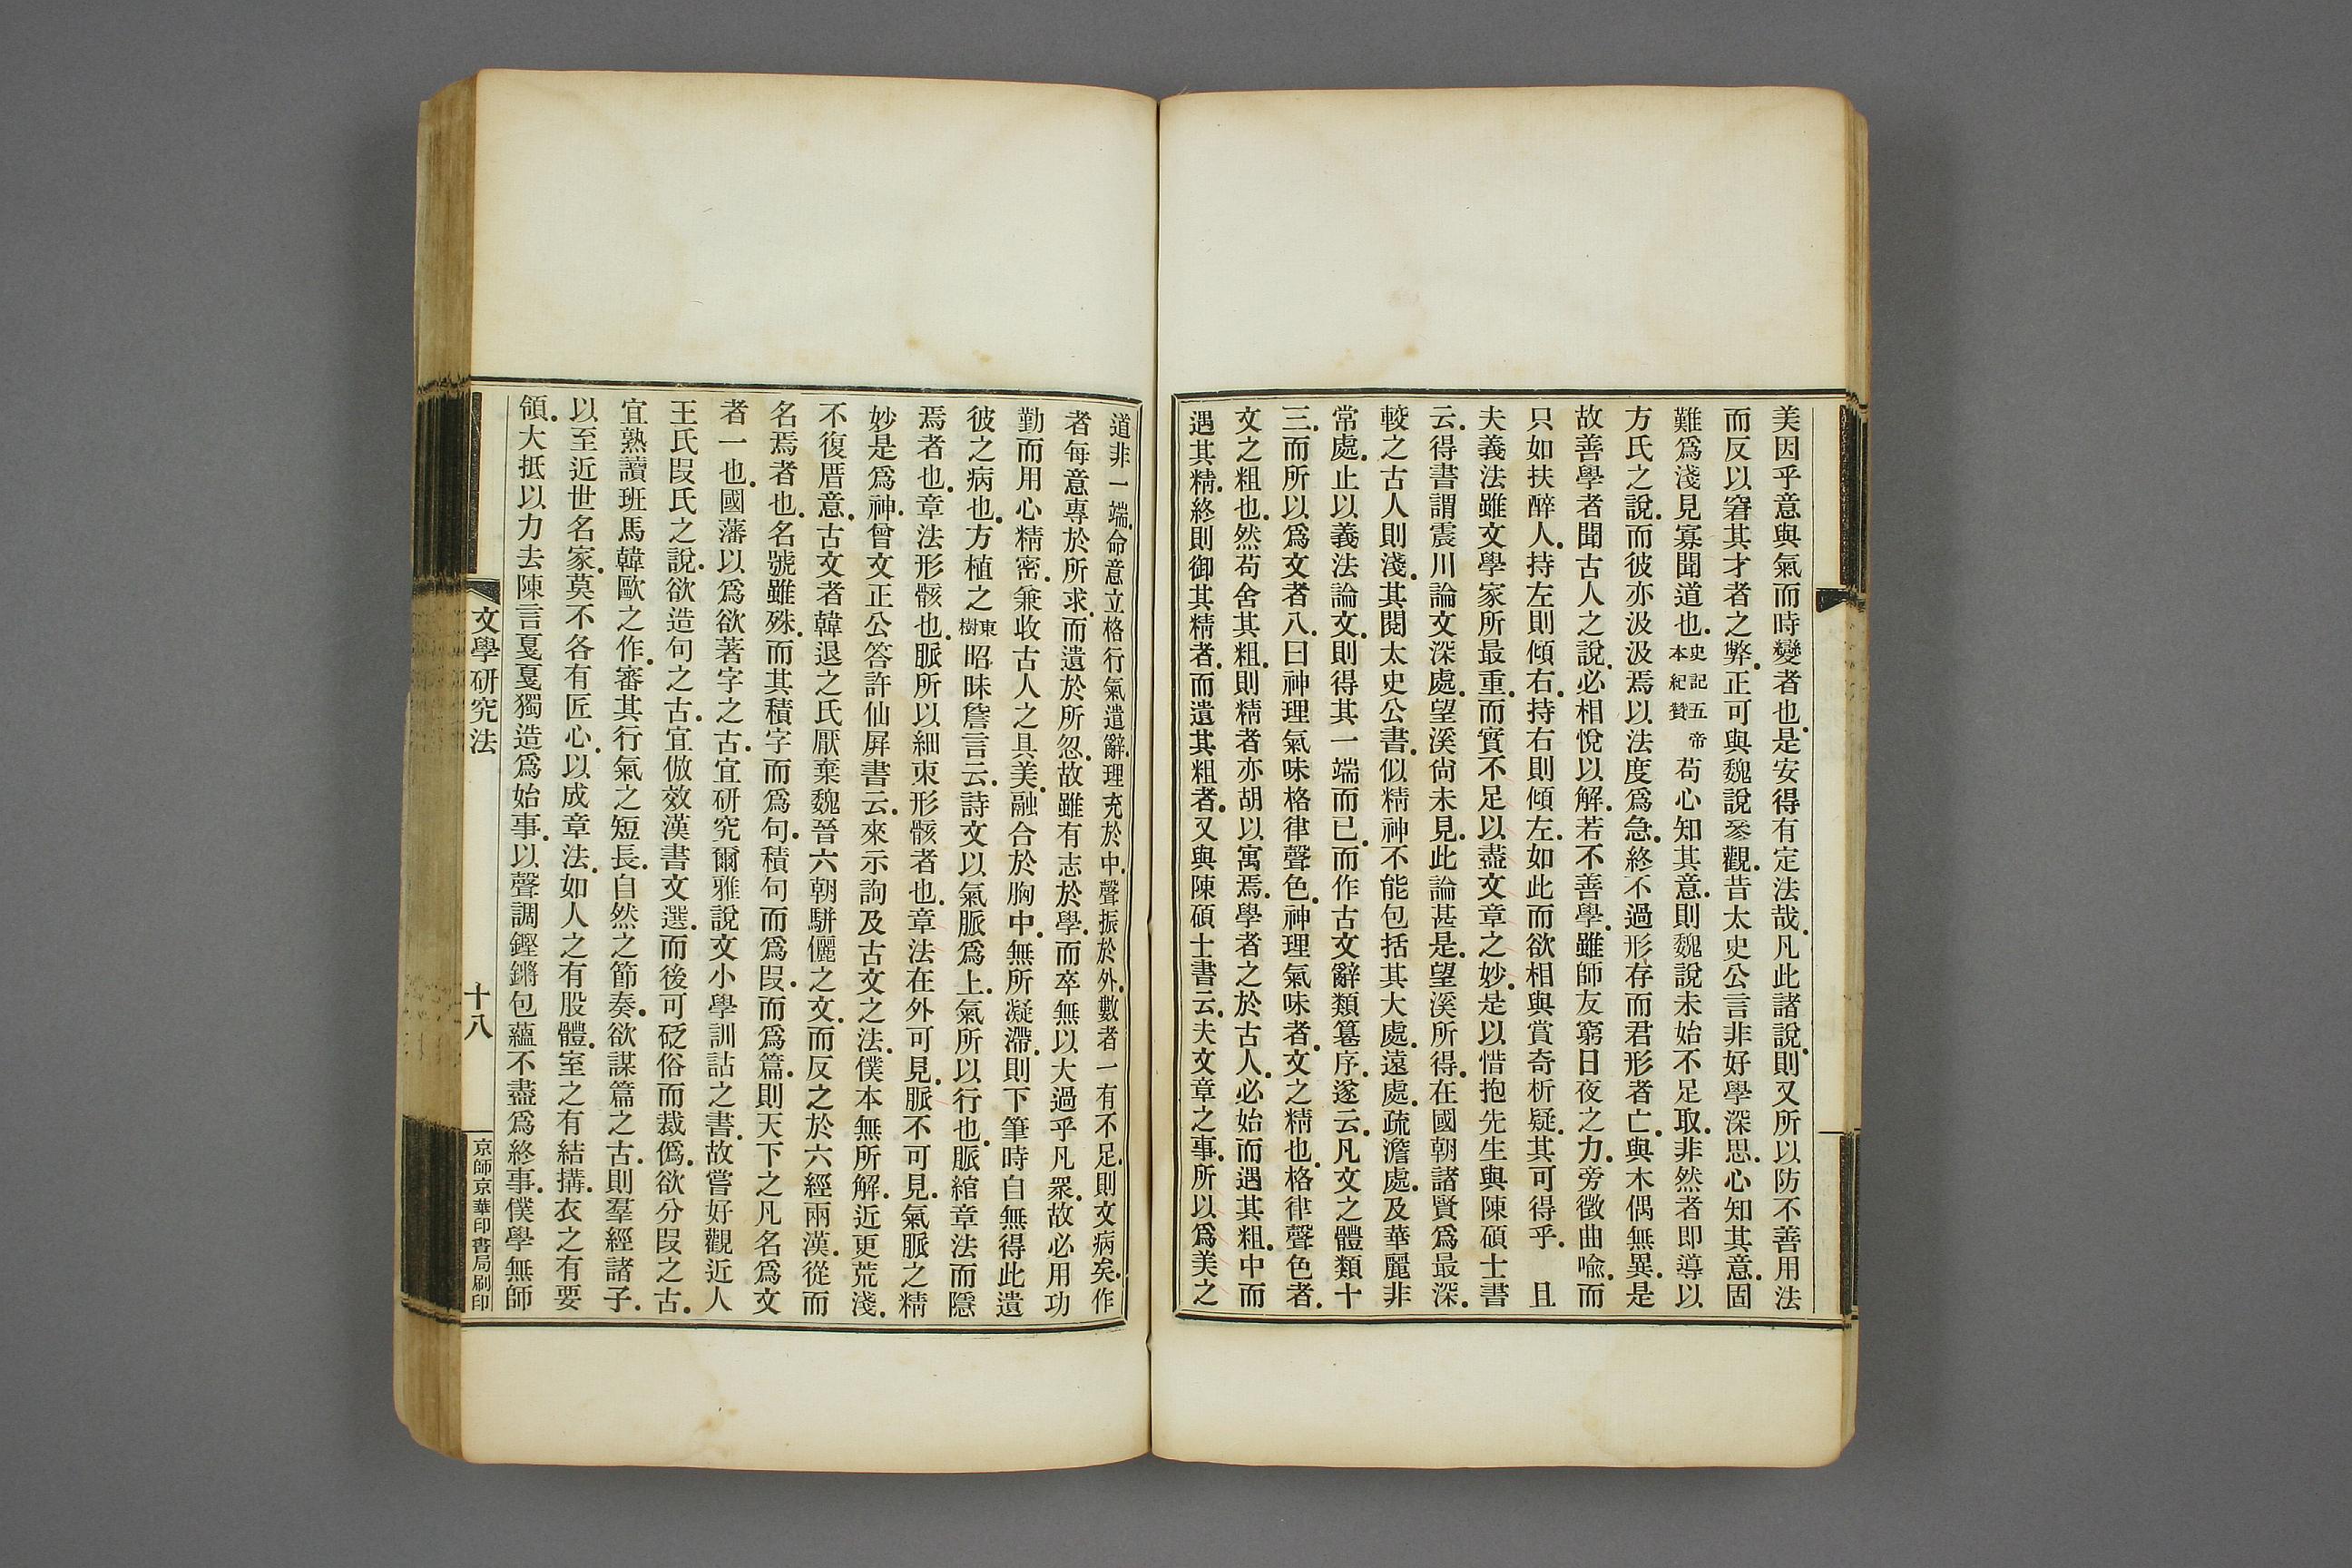 美因乎意與氣而時變者也.是安得有定法哉.凡此諸說.則又所以防不善用法
而反以窘其才者之弊.正可與魏說參觀.昔太史公言非好學深思.心知其意.固
難爲淺見寡聞道也.史記五帝本紀贊苟心知其意.則魏說未始不足取.非然者即導以
方氏之說.而彼亦汲汲焉以法度爲急.終不過形存而君形者亡.與木偶無異.是
故善學者聞古人之說.必相悅以解.若不善學.雖師友窮日夜之力.旁徵曲喩.而
只如扶醉人.持左則傾右.持右則傾左.如此而欲相與賞奇析疑.其可得乎. 且
夫義法雖文學家所最重.而實不足以盡文章之妙.是以惜抱先生與陳碩士書
云.得書謂震川論文深處.望溪尙未見.此論甚是.望溪所得.在國朝諸賢爲最深.
較之古人則淺.其閱太史公書.似精神不能包括其大處.遠處.疏澹處.及華麗非
常處.止以義法論文.則得其一端而已.而作古文辭類篹序.遂云.凡文之體類十
三.而所以爲文者八.曰神理氣味格律聲色.神理氣味者.文之精也.格律聲色者.
文之粗也.然苟舍其粗.則精者亦胡以寓焉.學者之於古人.必始而遇其粗.中而
遇其精.終則御其精者.而遺其粗者.又與陳碩士書云.夫文章之事.所以爲美之
道非一端.命意立格行氣遣辭.理充於中.聲振於外.數者一有不足.則文病矣.作
者每意專於所求.而遺於所忽.故雖有志於學.而卒無以大過乎凡衆.故必用功
勤而用心精密.兼收古人之具美.融合於胸中.無所凝滯.則下筆時自無得此遺
彼之病也.方植之東樹昭昧詹言云.詩文以氣脈爲上.氣所以行也.脈綰章法而隱
焉者也.章法形骸也.脈所以細束形骸者也.章法在外可見.脈不可見.氣脈之精
妙.是爲神.曾文正公答許仙屛書云.來示詢及古文之法.僕本無所解.近更荒淺.
不復厝意.古文者.韓退之氏厭棄魏晉六朝駢儷之文.而反之於六經兩漢.從而
名焉者也.名號雖殊.而其積字而爲句.積句而爲段.而爲篇.則天下之凡名爲文
者一也.國藩以爲欲著字之古.宜研究爾雅說文小學訓詁之書.故嘗好觀近人
王氏段氏之說.欲造句之古.宜倣效漢書文選.而後可砭俗而裁僞.欲分段之古.
宜熟讀班馬韓歐之作.審其行氣之短長.自然之節奏.欲謀篇之古.則羣經諸子.
以至近世名家.莫不各有匠心.以成章法.如人之有股體.室之有結搆.衣之有要
領.大抵以力去陳言戛戛獨造爲始事.以聲調鏗鏘包蘊不盡爲終事.僕學無師
文學研究法
十八
京師京華印書局刷印